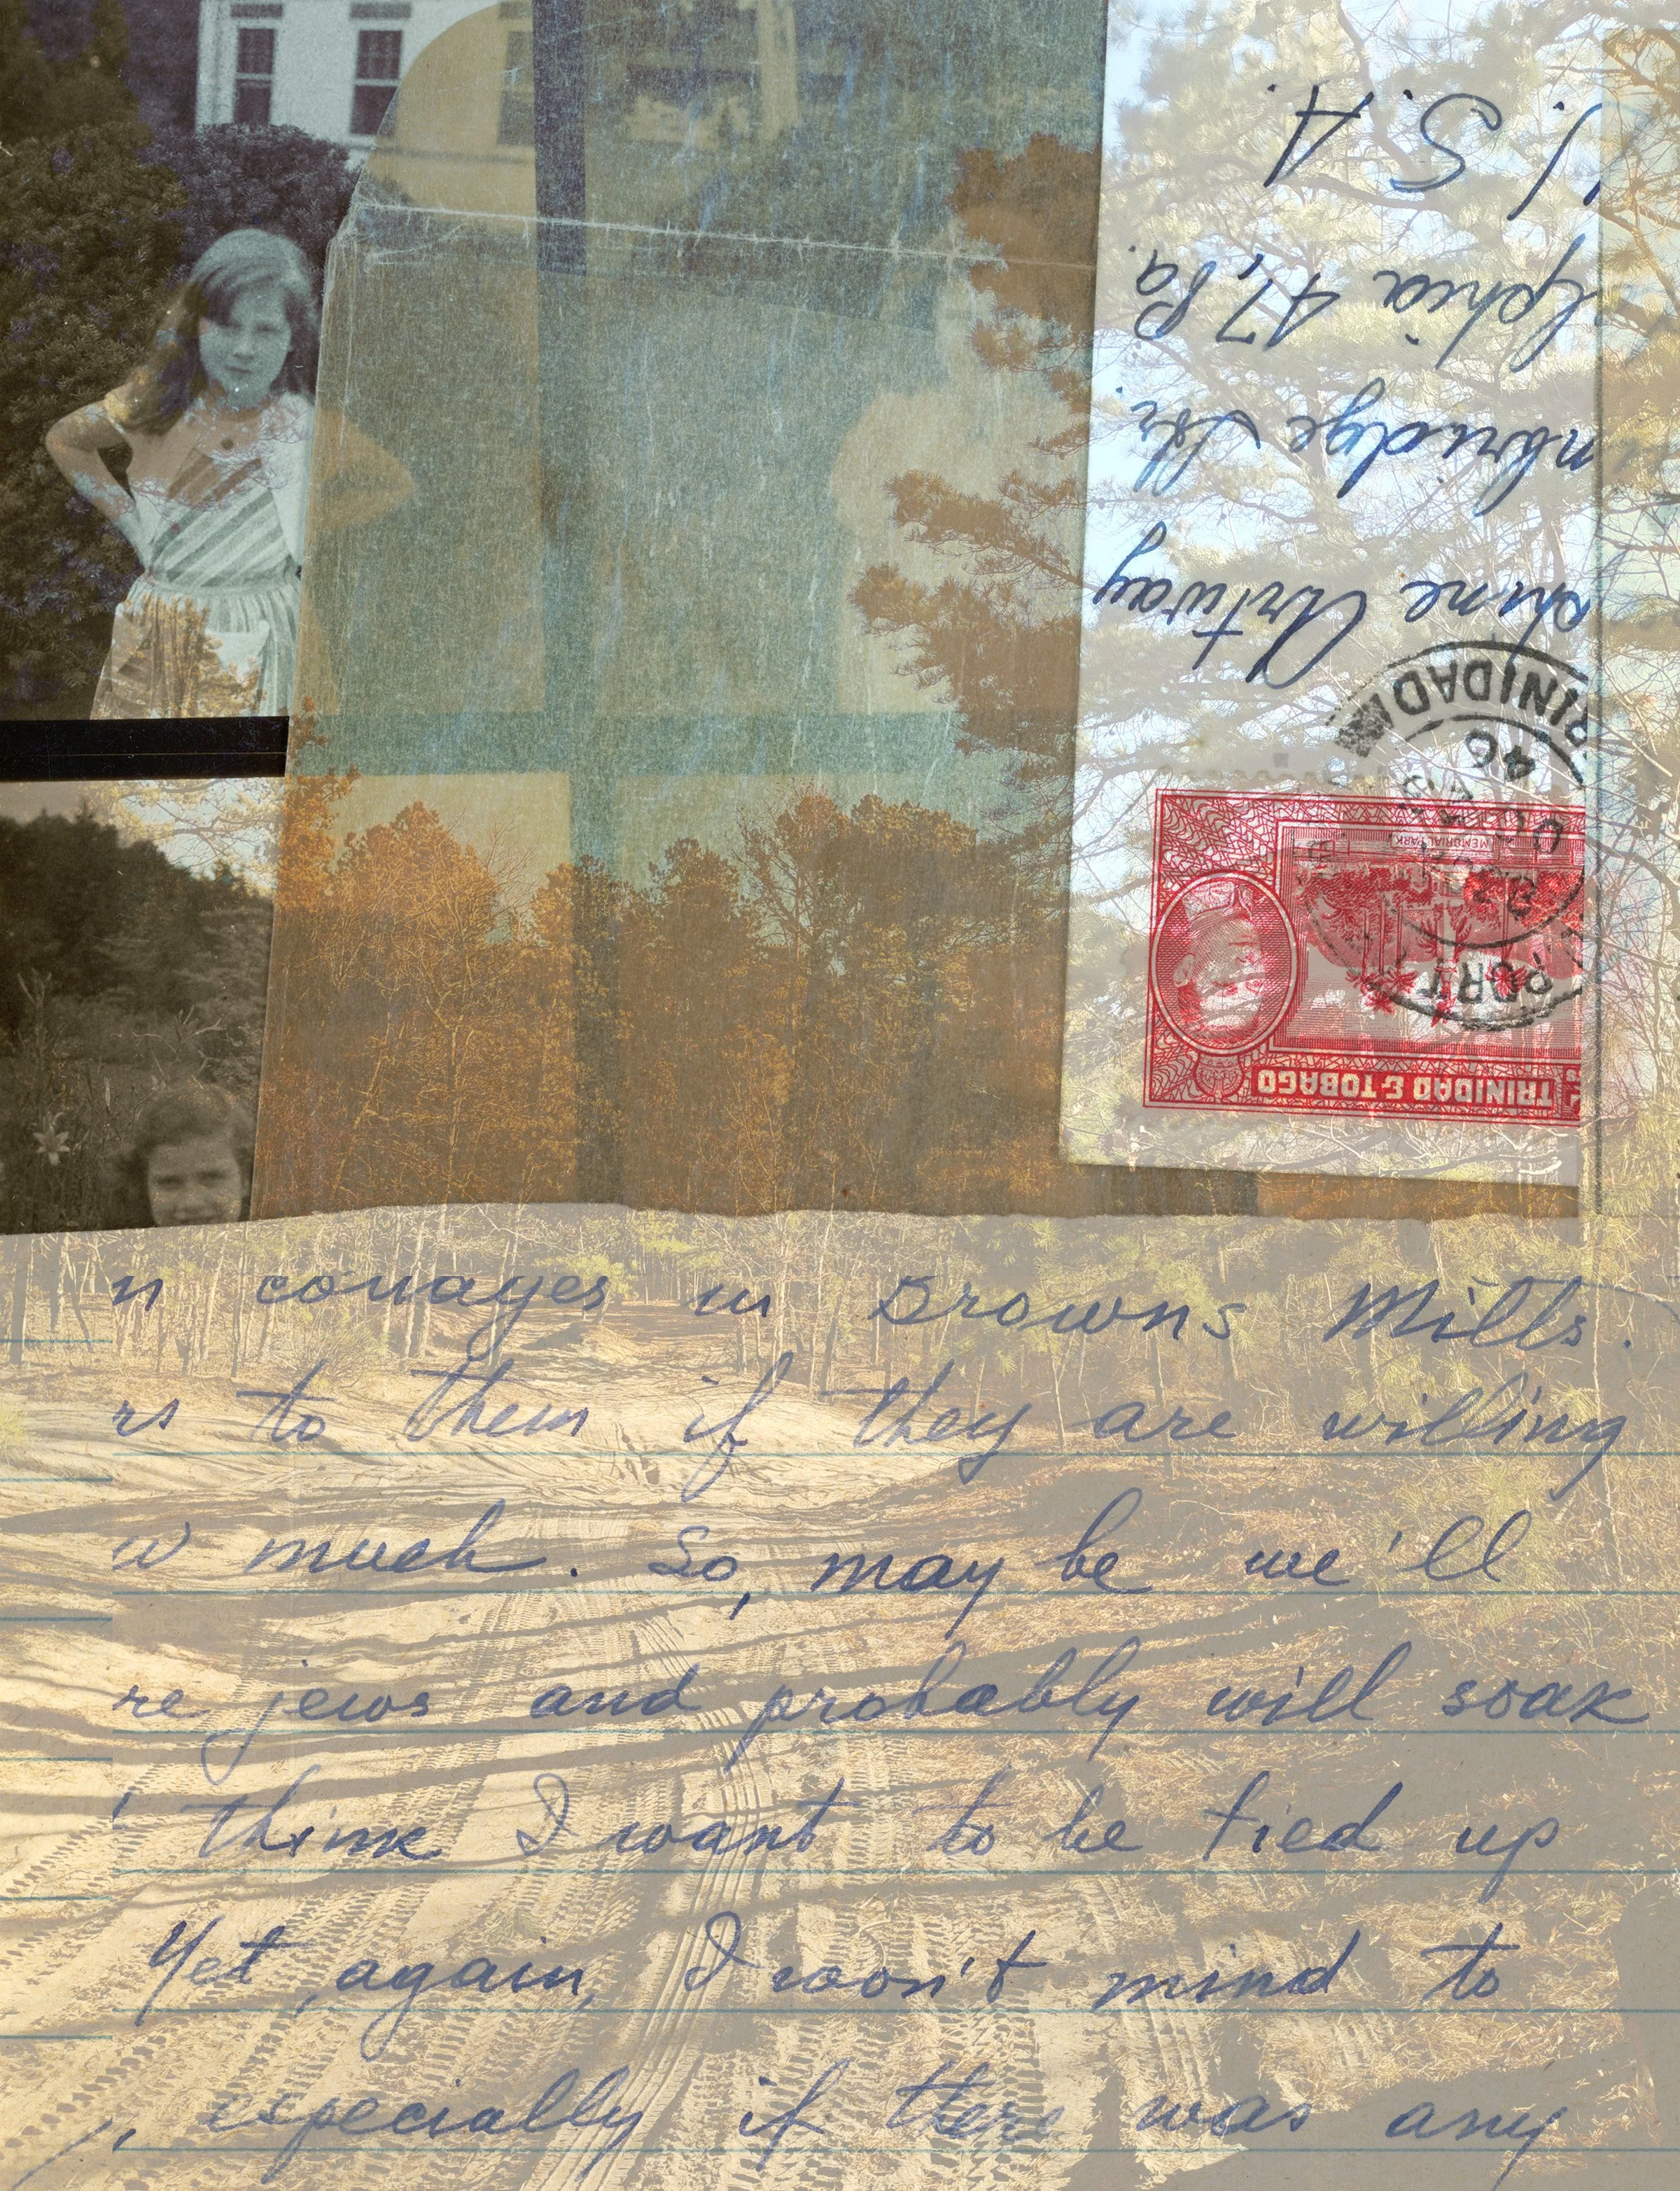 U. S. A.
lphia 47, Pa.
mbridge Str.
phine Artway
TRINIDAD
46
PORT
MEMORIAL PARK
TRINIDAD & TOBAGO
n cottages in Browns Mills.
rs to them if they are willing
w much. So, may be we'll
re jews and probably will soak
think I want to be tied up
Yet, again, I won't mind to
, especially if there was any